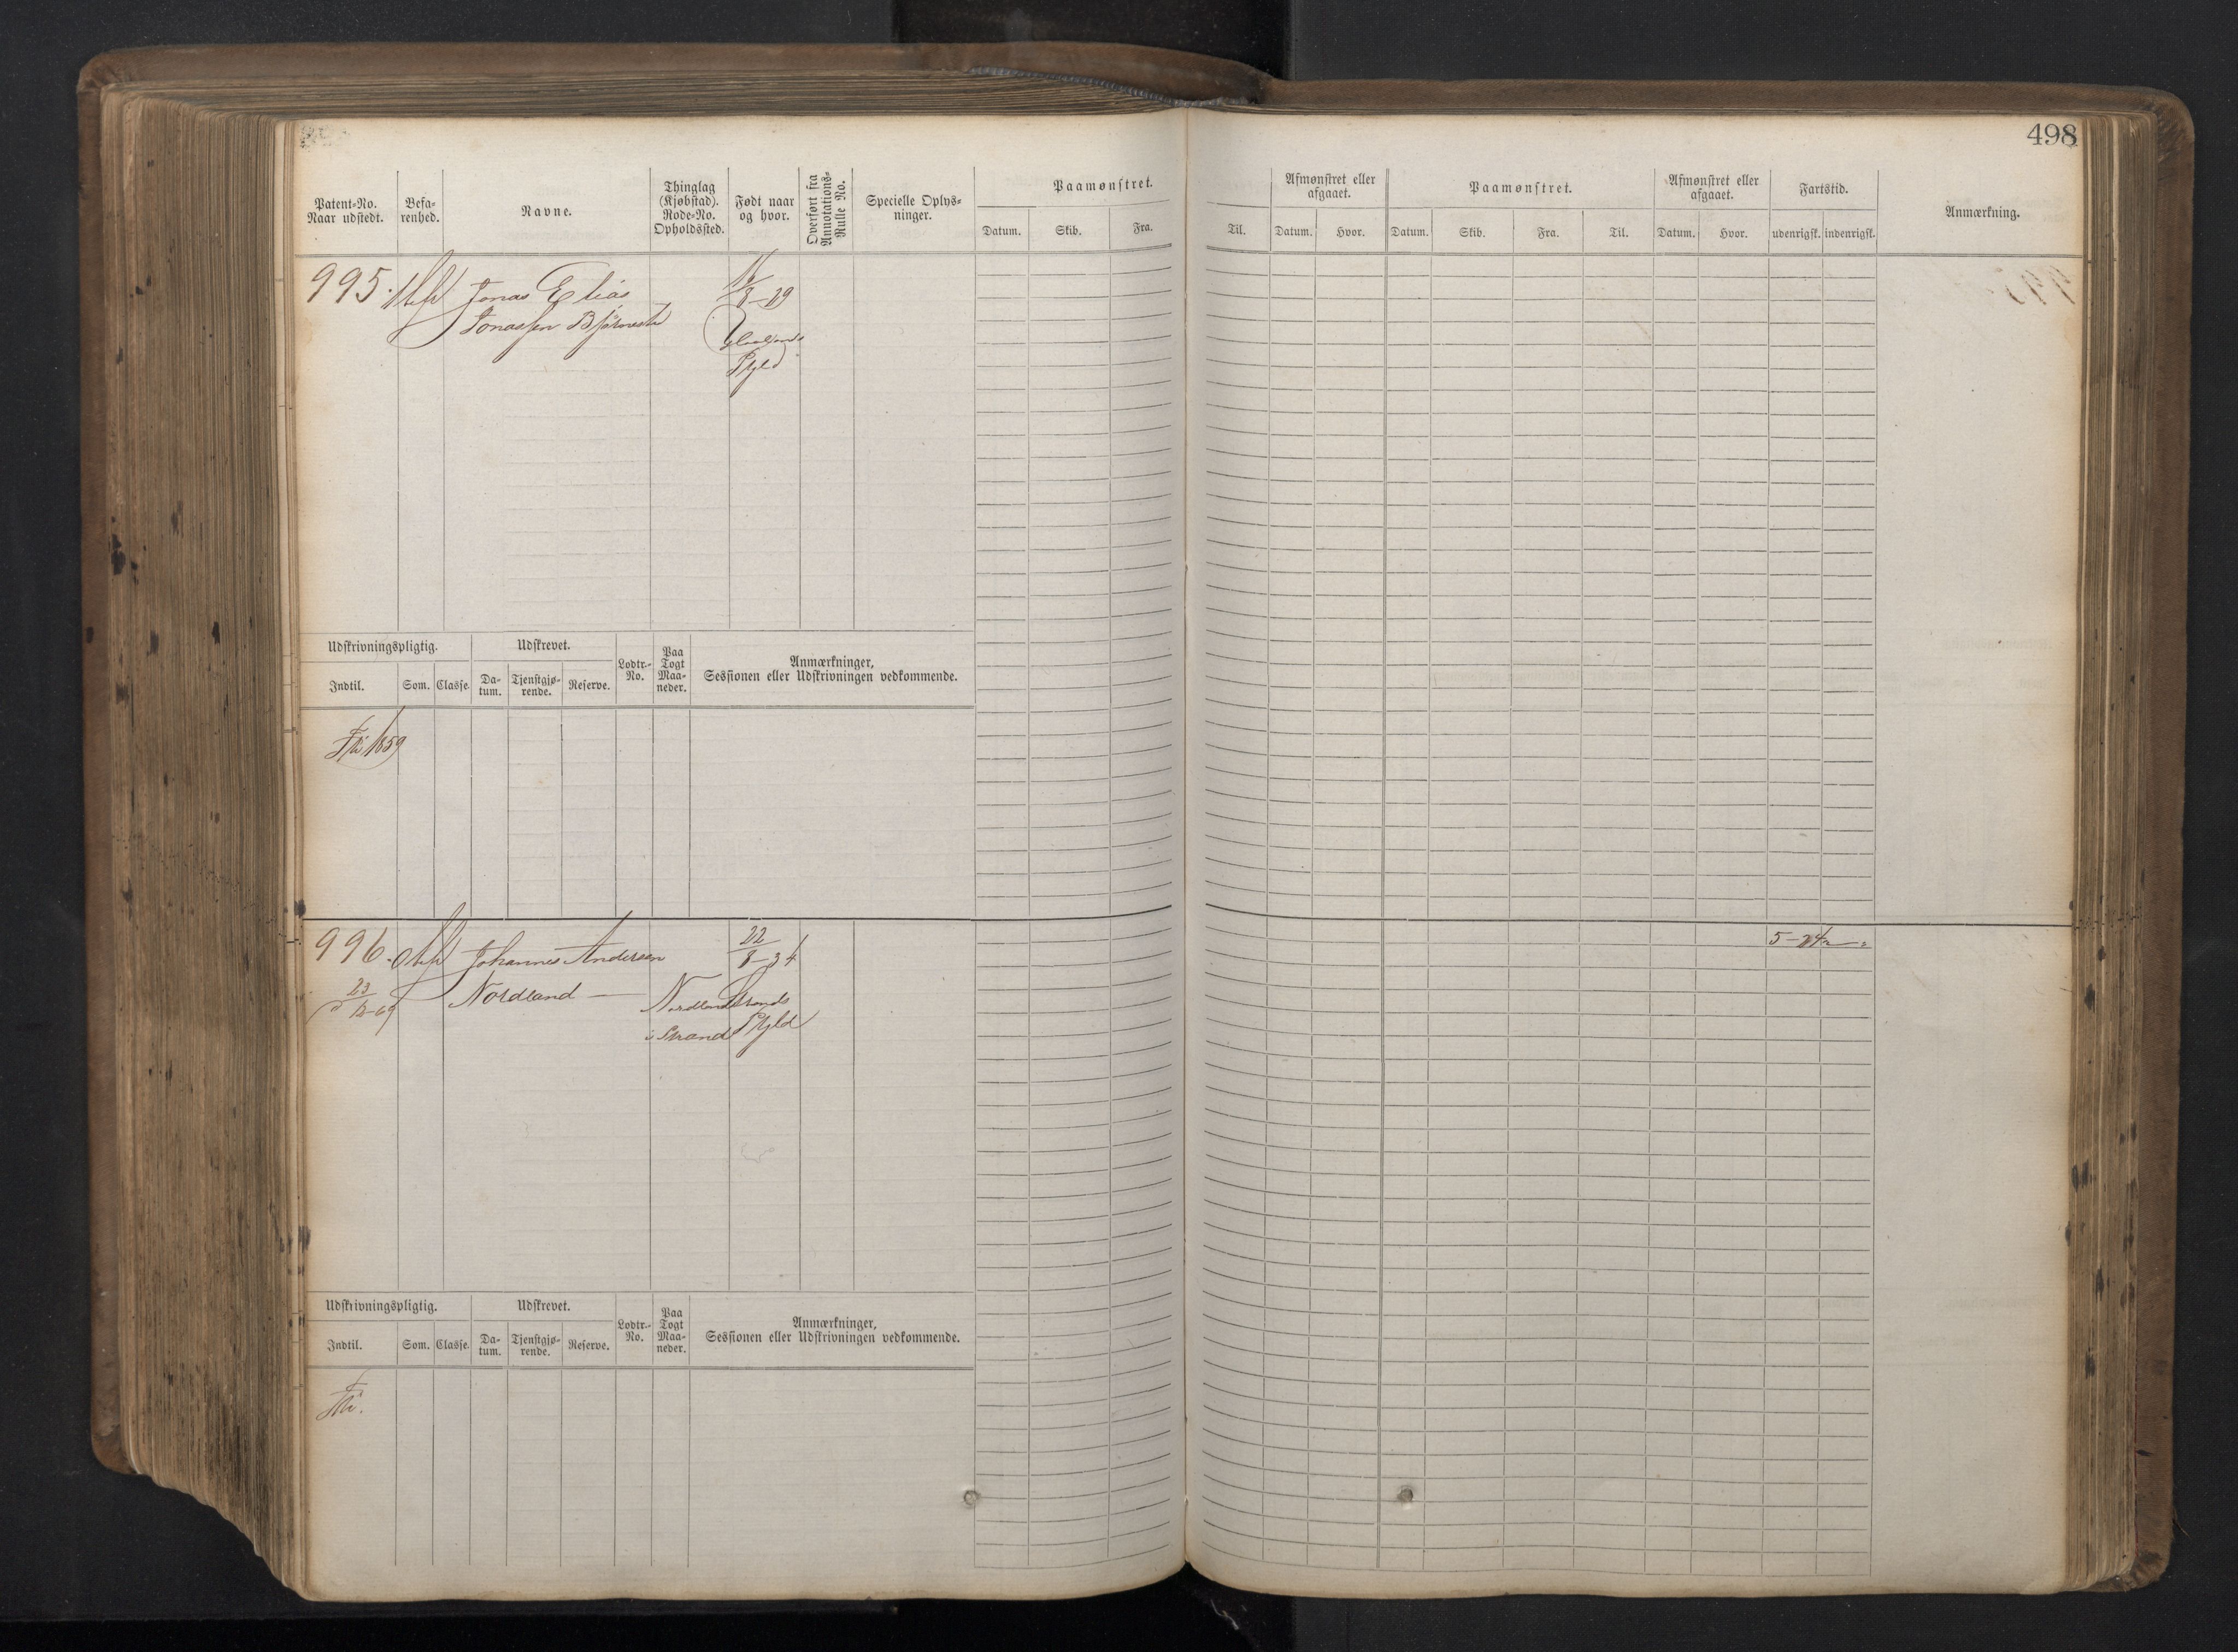 498
Patent-No.
Naar udstedt.
Befa-
renhed.
Navne.
Thinglag
(Kjøbstad).
Rode-No.
Opholdssted.
Født naar
og hvor.
Overført fra
Annotations-
Rulle No.
Specielle Oplys-
ninger.
Paamønstret.
Datum.
Skib.
Fra.
Til.
Afmønstret eller
afgaaet.
Datum.
Hvor.
Paamønstret.
Datum.
Skib.
Fra.
Til.
Afmønstret eller
afgaaet.
Datum.
Hvor.
Fartstid.
udenrigsk.
indenrigsk.
Anmærkning.
995.
Jonas Elias
Jonassen
8-29
Pgld
Udskrivningspligtig.
Indtil.
Som.
Classe.
Udskrevet.
Da-
tum.
Tjenstgjø-
rende.
Reserve.
Lodtr.-
No.
Paa
Togt
Maa-
neder.
Anmærkninger,
Sessionen eller Udskrivningen vedkommende.
Fri 1859
996.
23
12-69
Johannes Andersen
Nordland
Nordland
i Strand
22
8-34
Strands
Pgld
5-
Udskrivningspligtig.
Indtil.
Som.
Classe.
Udskrevet.
Da-
tum.
Tjenstgjø-
rende.
Reserve.
Lodtr.-
No.
Paa
Togt
Maa-
neder.
Anmærkninger,
Sessionen eller Udskrivningen vedkommende.
Fri.